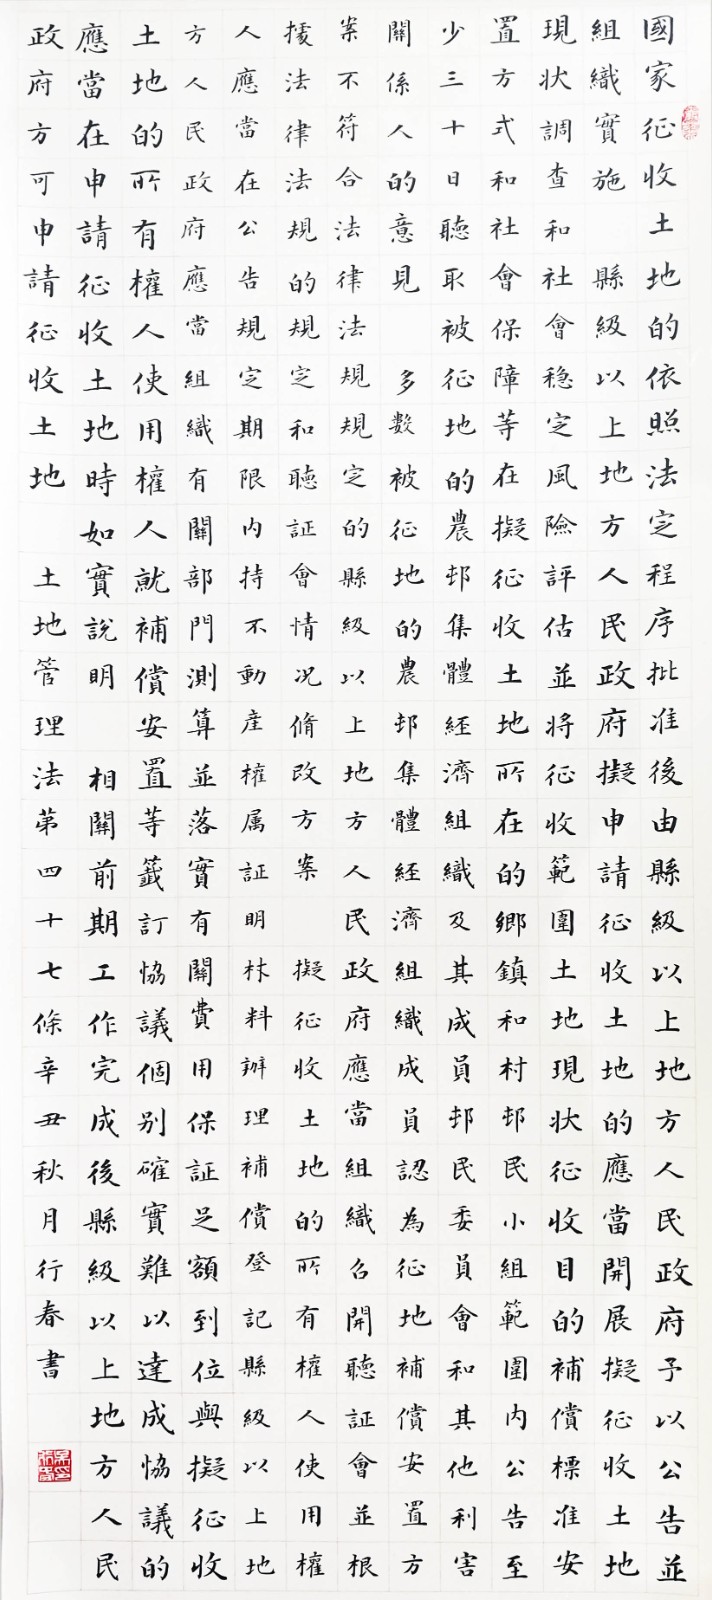 國家征收土地的依照法定程序批准後由縣級以上地方人民政府予以公告並
組織實施 縣級以上地方人民政府擬申請征收土地的應當開展擬征收土地
現狀調查和社會穩定風險評估並將征收範圍土地現狀征收目的補償標准安
置方式和社會保障等在擬征收土地所在的鄉鎮和村邨民小組範圍內公告至
少三十日聽取被征地的農邨集體經濟組織及其成員邨民委員會和其他利害
關係人的意見 多數被征地的農邨集體經濟組織成員認為征地補償安置方
案不符合法律法規規定的縣級以上地方人民政府應當組織召開聽証會並根
據法律法規的規定和聽証會情况脩改方案 擬征收土地的所有權人使用權
人應當在公告規定期限內持不動産權属証明材料辦理補償登記縣級以上地
方人民政府應當組織有關部門測算並落實有關費用保証足額到位與擬征收
土地的所有權人使用權人就補償安置等籤訂協議個别確實難以達成協議的
應當在申請征收土地時如實說明 相關前期工作完成後縣級以上地方人民
政府方可申請征收土地 土地管理法第四十七條辛丑秋月行春書